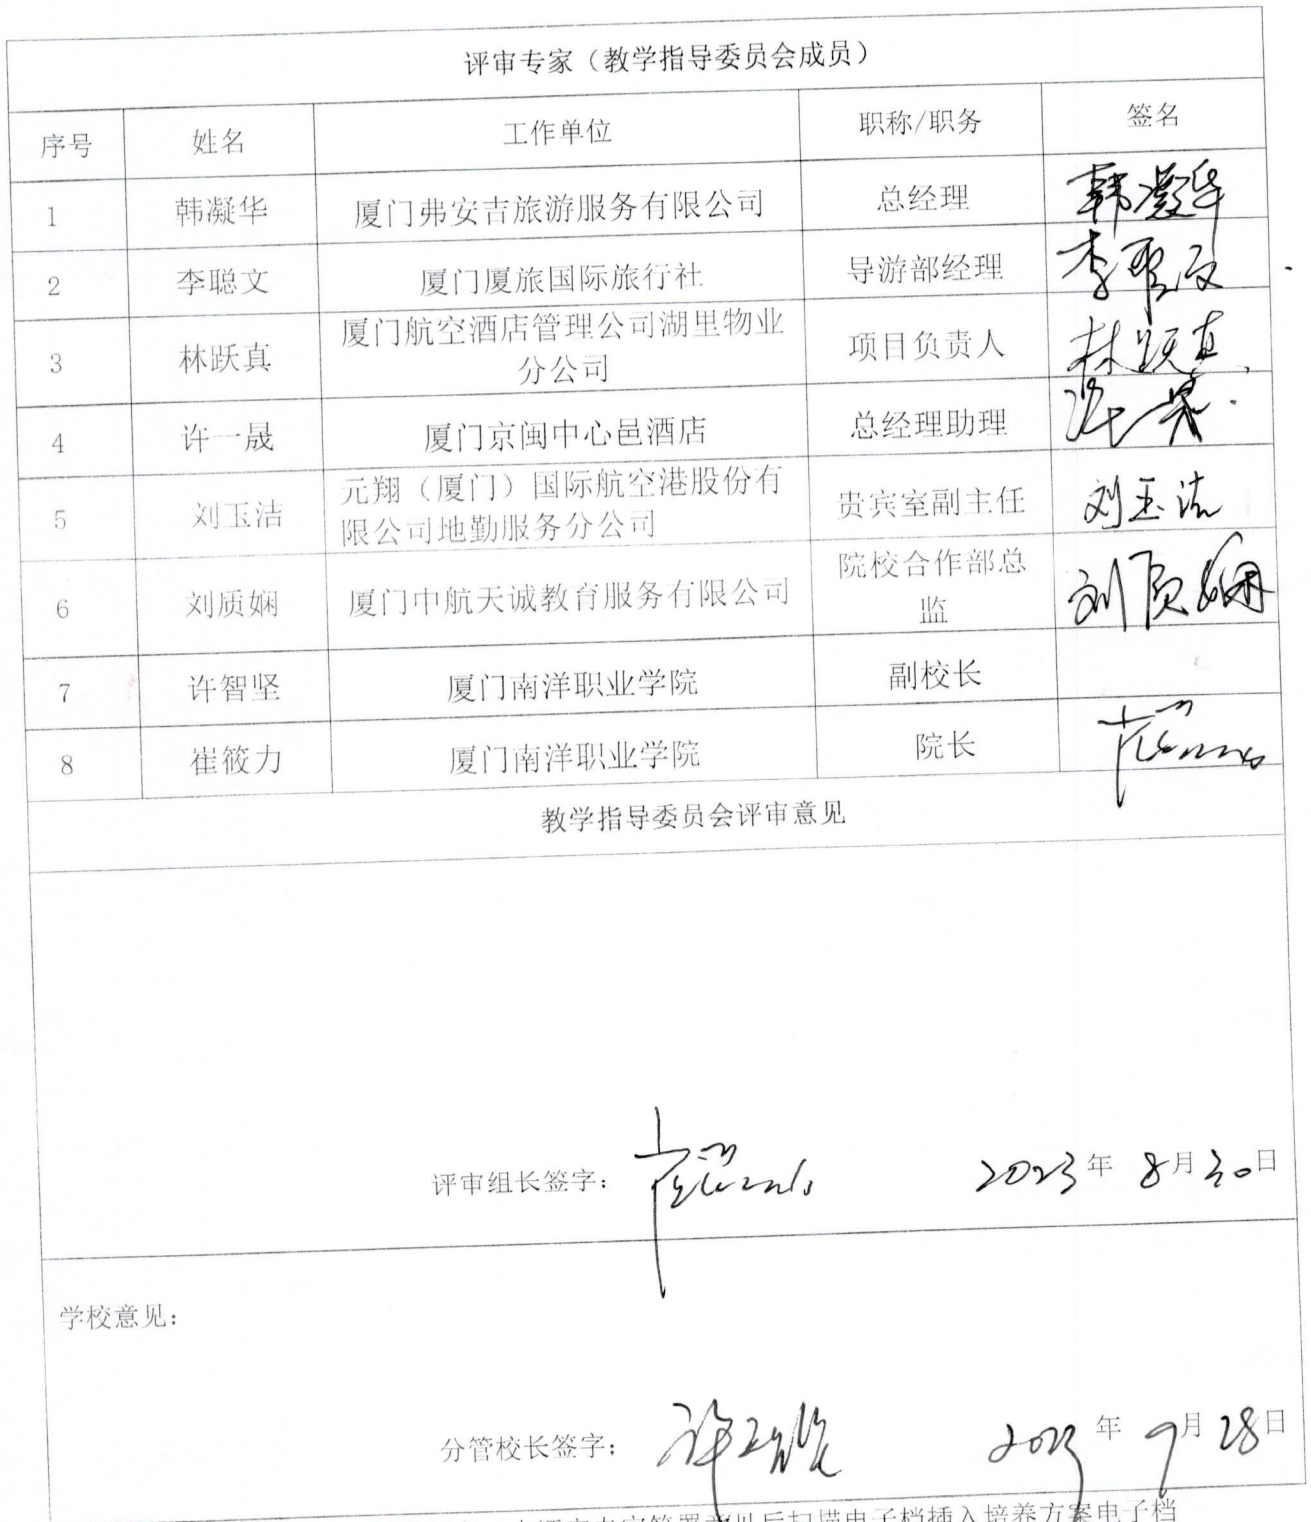 评审专家（教学指导委员会成员）
序号 姓名 工作单位 职称/职务 签名
1 韩凝华 厦门弗安吉旅游服务有限公司 总经理 韩凝华
2 李聪文 厦门厦旅国际旅行社 导游部经理 李聪文
3 林跃真 厦门航空酒店管理公司湖里物业
分公司 项目负责人 林跃真
4 许一晟 厦门京闽中心邑酒店 总经理助理 许一晟
5 刘玉洁 元翔（厦门）国际航空港股份有
限公司地勤服务分公司 贵宾室副主任 刘玉洁
6 刘质娴 厦门中航天诚教育服务有限公司 院校合作部总
监 刘质娴
7 许智坚 厦门南洋职业学院 副校长
8 崔筱力 厦门南洋职业学院 院长
教学指导委员会评审意见
评审组长签字： 2023年 8月30日
学校意见：
分管校长签字： 2023年 9月28日
后扫描电子档插入培养方案电子档